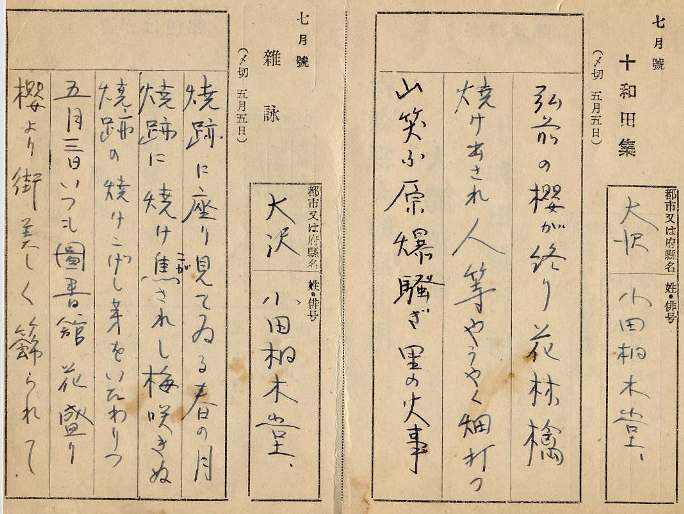 七月號
十和田集
(〆切 五月五日)
都市又は府縣名 姓・俳号
大沢 小田桐木堂、
弘前の櫻が終り花林檎
焼け出され人等やうやく畑打つ
山笑ふ原爆騒ぎ里の火事
七月號
雜詠
(〆切 五月五日)
都市又は府縣名 姓・俳号
大沢 小田桐木堂、
焼跡に座り見てゐる春の月
焼跡に焼け焦されし梅咲きぬ
こが
焼跡の焼けこげし芽をいたわりつ
五月三日いつも圖書舘花盛り
櫻より街美しく飾られて